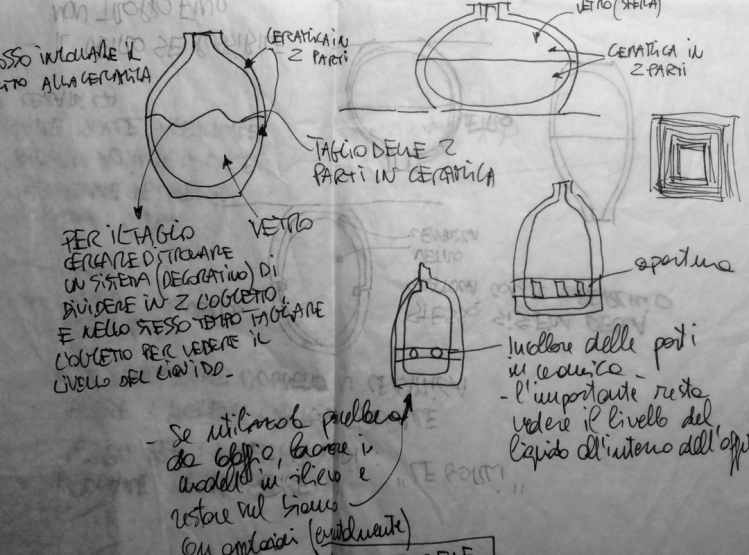 VETRO (SFERA)
CERAMICA IN
2 PARTI
CERAMICA IN
2 PARTI
INCOLLARE IL
ALLA CERAMICA
TAGLIO DELLE 2
PARTI IN CERAMICA
VETRO
PER IL TAGLIO
CERCARE DI TROVARE
UN SISTEMA (DECORATIVO) DI
DIVIDERE IN 2 L'OGGETTO.
E NELLO STESSO TEMPO TAGLIARE
L'OGGETTO PER VEDERE IL
LIVELLO DEL LIQUIDO.
apertura
Incollare delle parti
in ceramica.
- l'importante resta
vedere il livello del
liquido all'interno dell'
- Se utilizzata
da
modelli in
restare sul bianco
con (eventualmente)